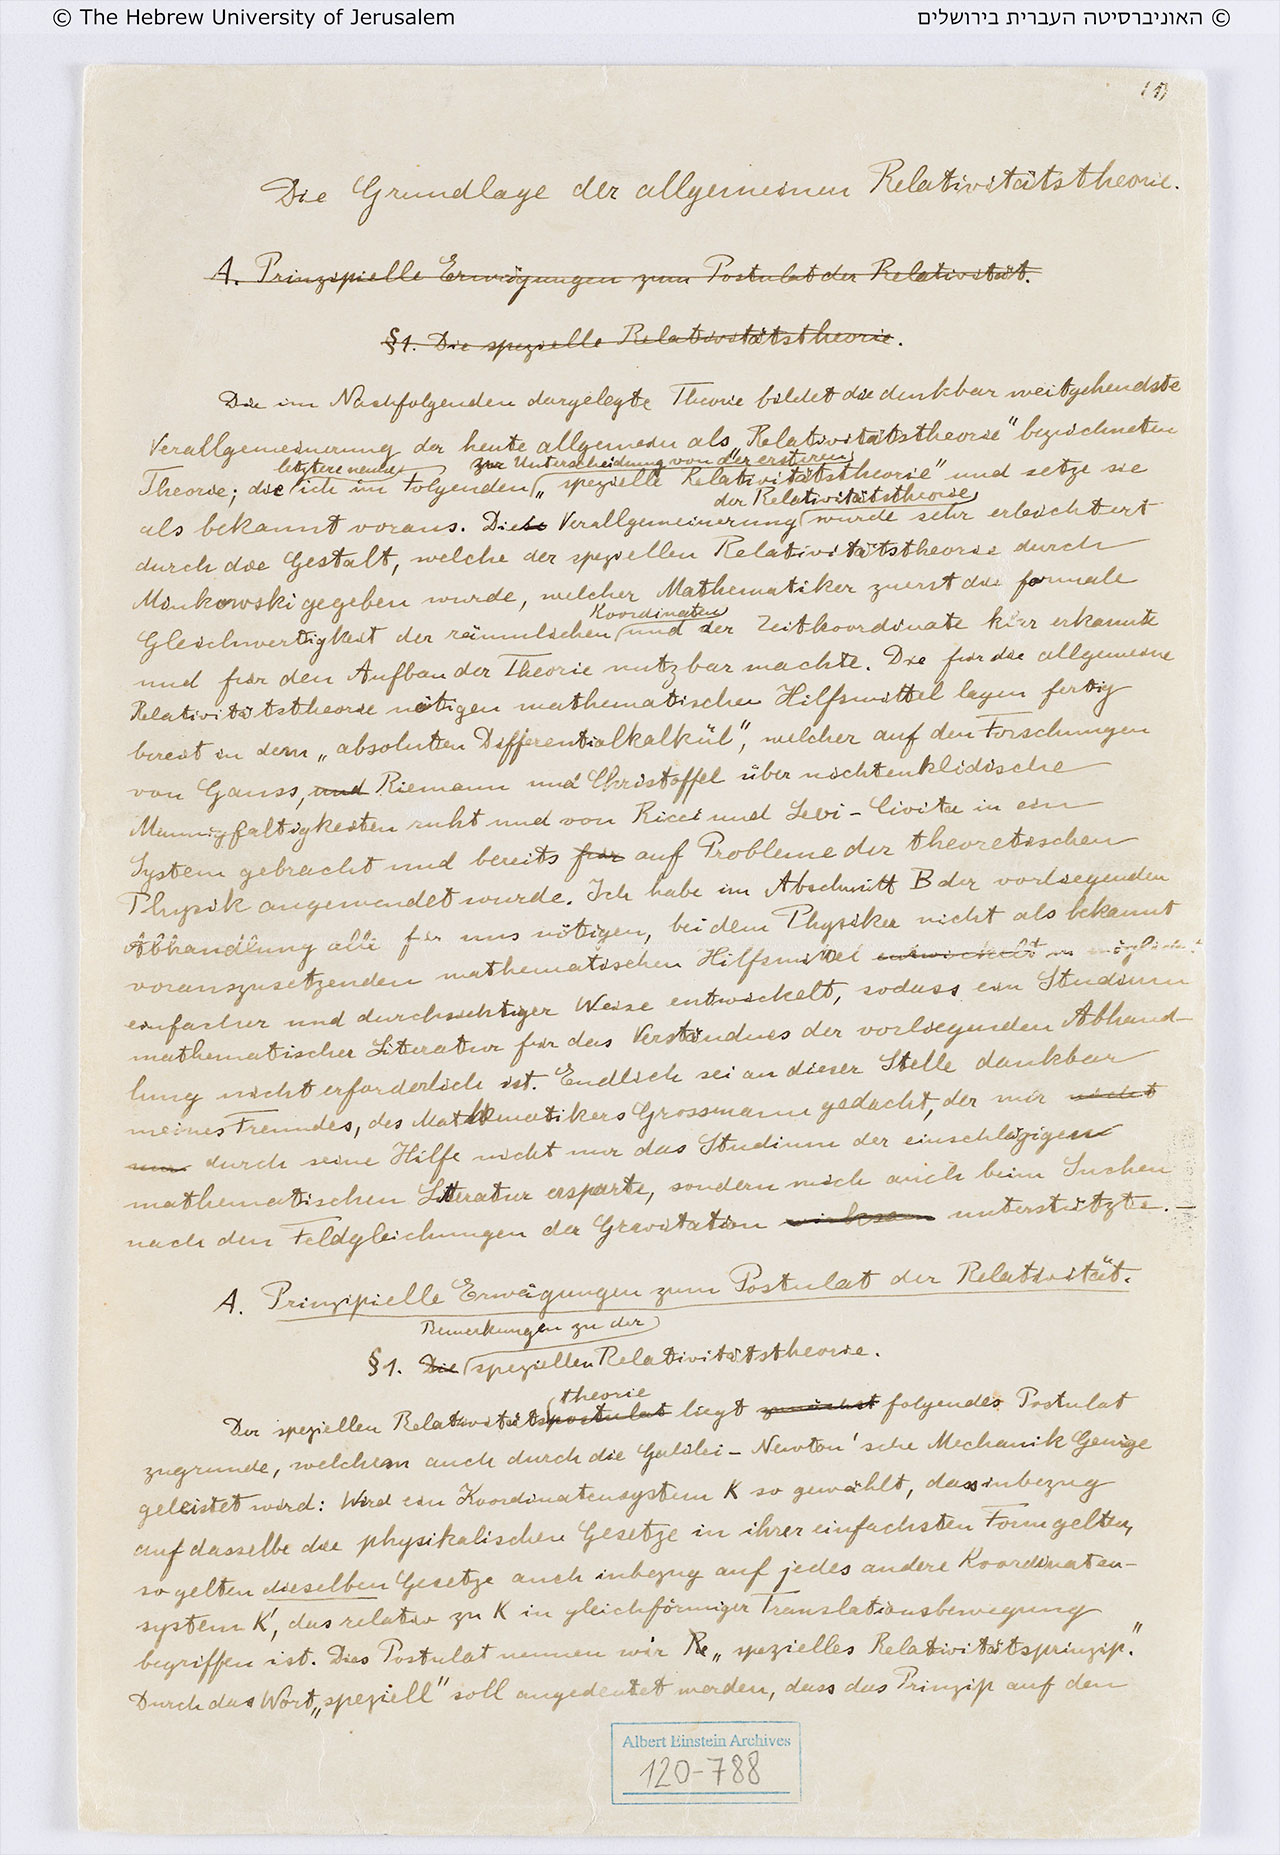 © The Hebrew University of Jerusalem
© האוניברסיטה העברית בירושלים
(1)
Die Grundlage der allgemeinen Relativitätstheorie.
A. Prinzipielle Erwägungen zum Postulat der Relativität.
§1. Die spezielle Relativitätstheorie.
Die im Nachfolgenden dargelegte Theorie bildet die denkbar weitgehendste
Verallgemeinerung der heute allgemein als „Relativitätstheorie" bezeichneten
letztere nenne zur Unterscheidung von der ersteren
Theorie; die ich im Folgenden „spezielle Relativitätstheorie" und setze sie
der Relativitätstheorie
als bekannt voraus. Diese Verallgemeinerung wurde sehr erleichtert
durch die Gestalt, welche der speziellen Relativitätstheorie durch
Minkowski gegeben wurde, welcher Mathematiker zuerst die formale
Koordinaten
Gleichwertigkeit der räumlichen und der Zeitkoordinate klar erkannte
und für den Aufbau der Theorie nutzbar machte. Die für die allgemeine
Relativitätstheorie nötigen mathematischen Hilfsmittel lagen fertig
bereit in dem „absoluten Differentialkalkül", welcher auf den Forschungen
von Gauss, und Riemann und Christoffel über nichteuklidische
Mannigfaltigkeiten ruht und von Ricci und Levi-Civita in ein
System gebracht und bereits für auf Probleme der theoretischen
Physik angewendet wurde. Ich habe im Abschnitt B der vorliegenden
Abhandlung alle für uns nötigen, bei dem Physiker nicht als bekannt
vorauszusetzenden mathematischen Hilfsmittel entwickelt in möglichst
einfacher und durchsichtiger Weise entwickelt, sodass ein Studium
mathematischer Literatur für das Verständnis der vorliegenden Abhand-
lung nicht erforderlich ist. Endlich sei an dieser Stelle dankbar
meines Freundes, des Mathematikers Grossmann gedacht, der mir nicht
nur durch seine Hilfe nicht nur das Studium der einschlägigen
mathematischen Literatur ersparte, sondern mich auch beim Suchen
nach den Feldgleichungen der Gravitation wirksam unterstützte. —
A. Prinzipielle Erwägungen zum Postulat der Relativität.
Bemerkungen zu der
§1. Die speziellen Relativitätstheorie.
theorie
Der speziellen Relativitätspostulat liegt zunächst folgendes Postulat
zugrunde, welchem auch durch die Galilei-Newton'sche Mechanik Genüge
geleistet wird: Wird ein Koordinatensystem K so gewählt, dass inbezug
auf dasselbe die physikalischen Gesetze in ihrer einfachsten Form gelten,
so gelten dieselben Gesetze auch inbezug auf jedes andere Koordinaten-
system K', das relativ zu K in gleichförmiger Translationsbewegung
begriffen ist. Dies Postulat nennen wir Re „spezielles Relativitätsprinzip."
Durch das Wort „speziell" soll angedeutet werden, dass das Prinzip auf den
Albert Einstein Archives
120-788